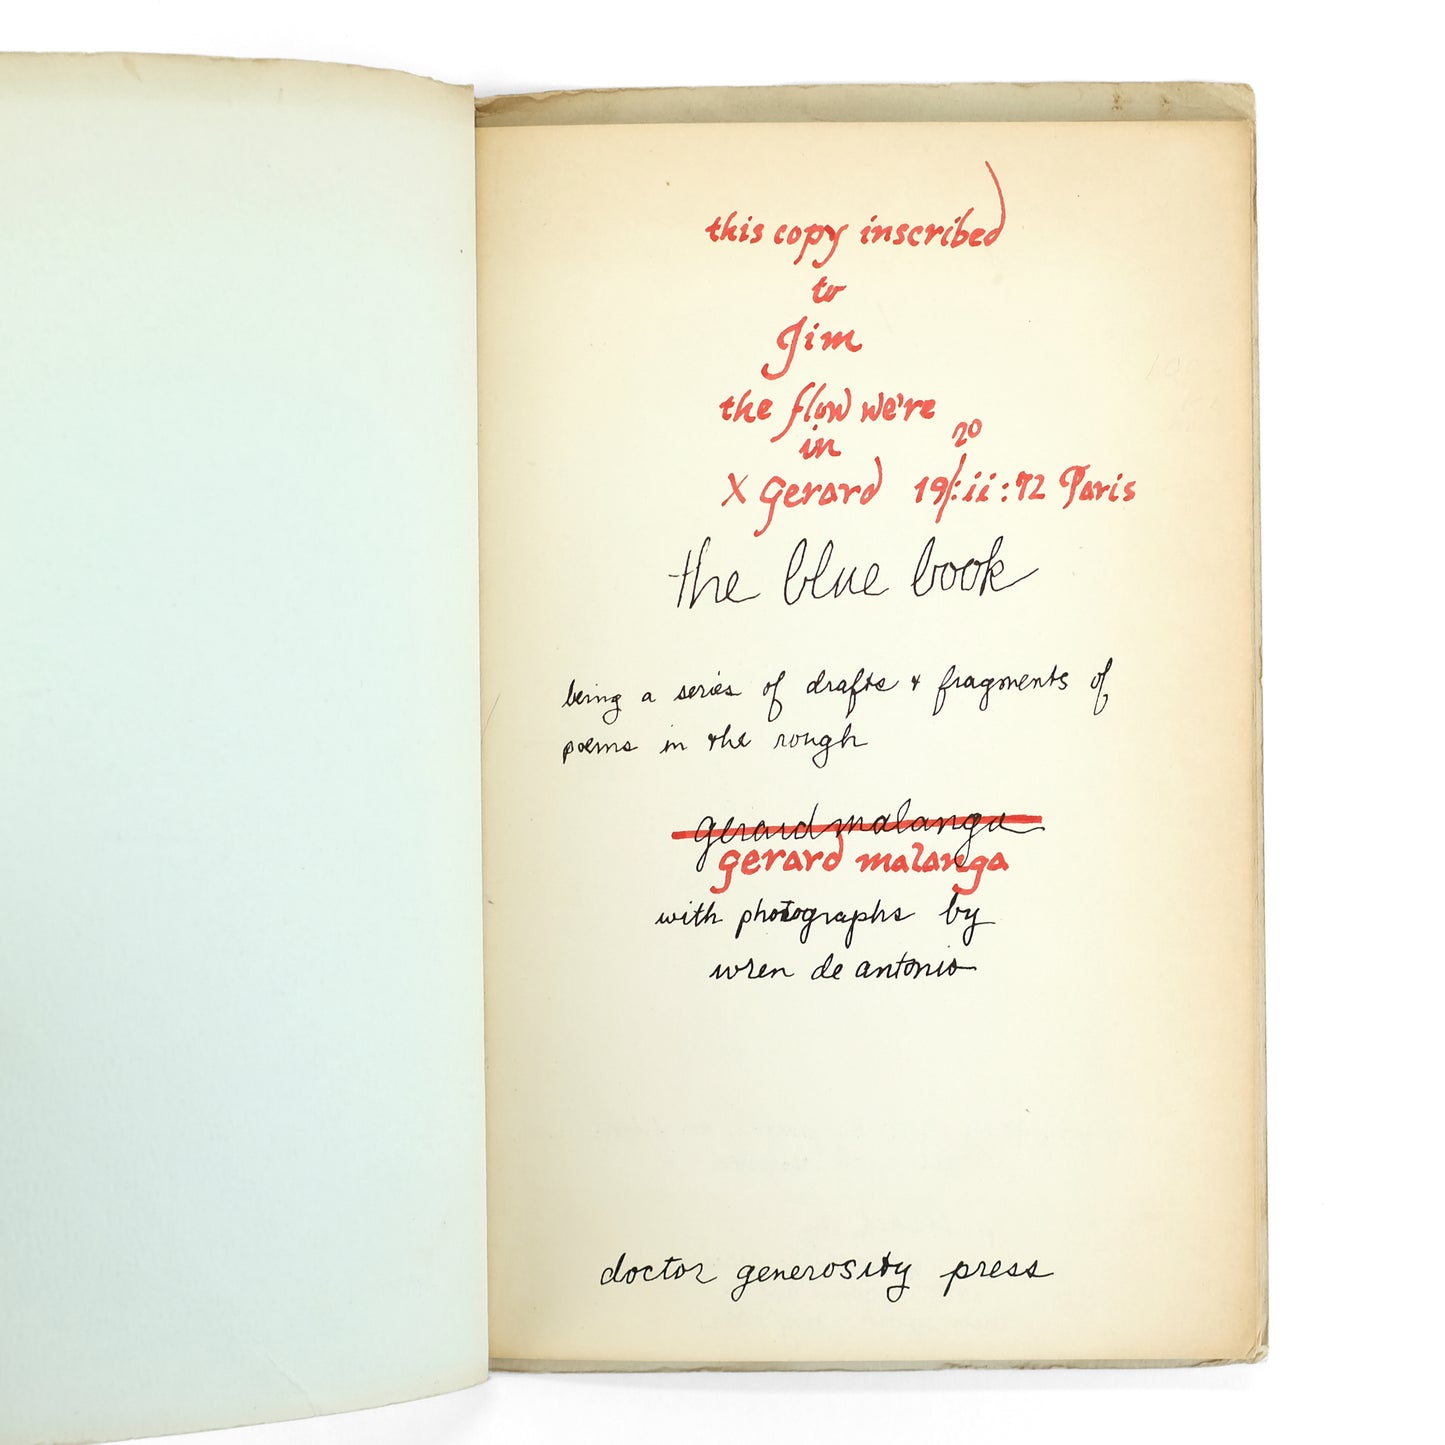 this copy inscribed
to
Jim
the flow we're
in
20
X Gerard 19/:ii:72 Paris
the blue book
being a series of drafts & fragments of
poems in the rough
gerard malanga
gerard malanga
with photographs by
wren de antonio
doctor generosity press